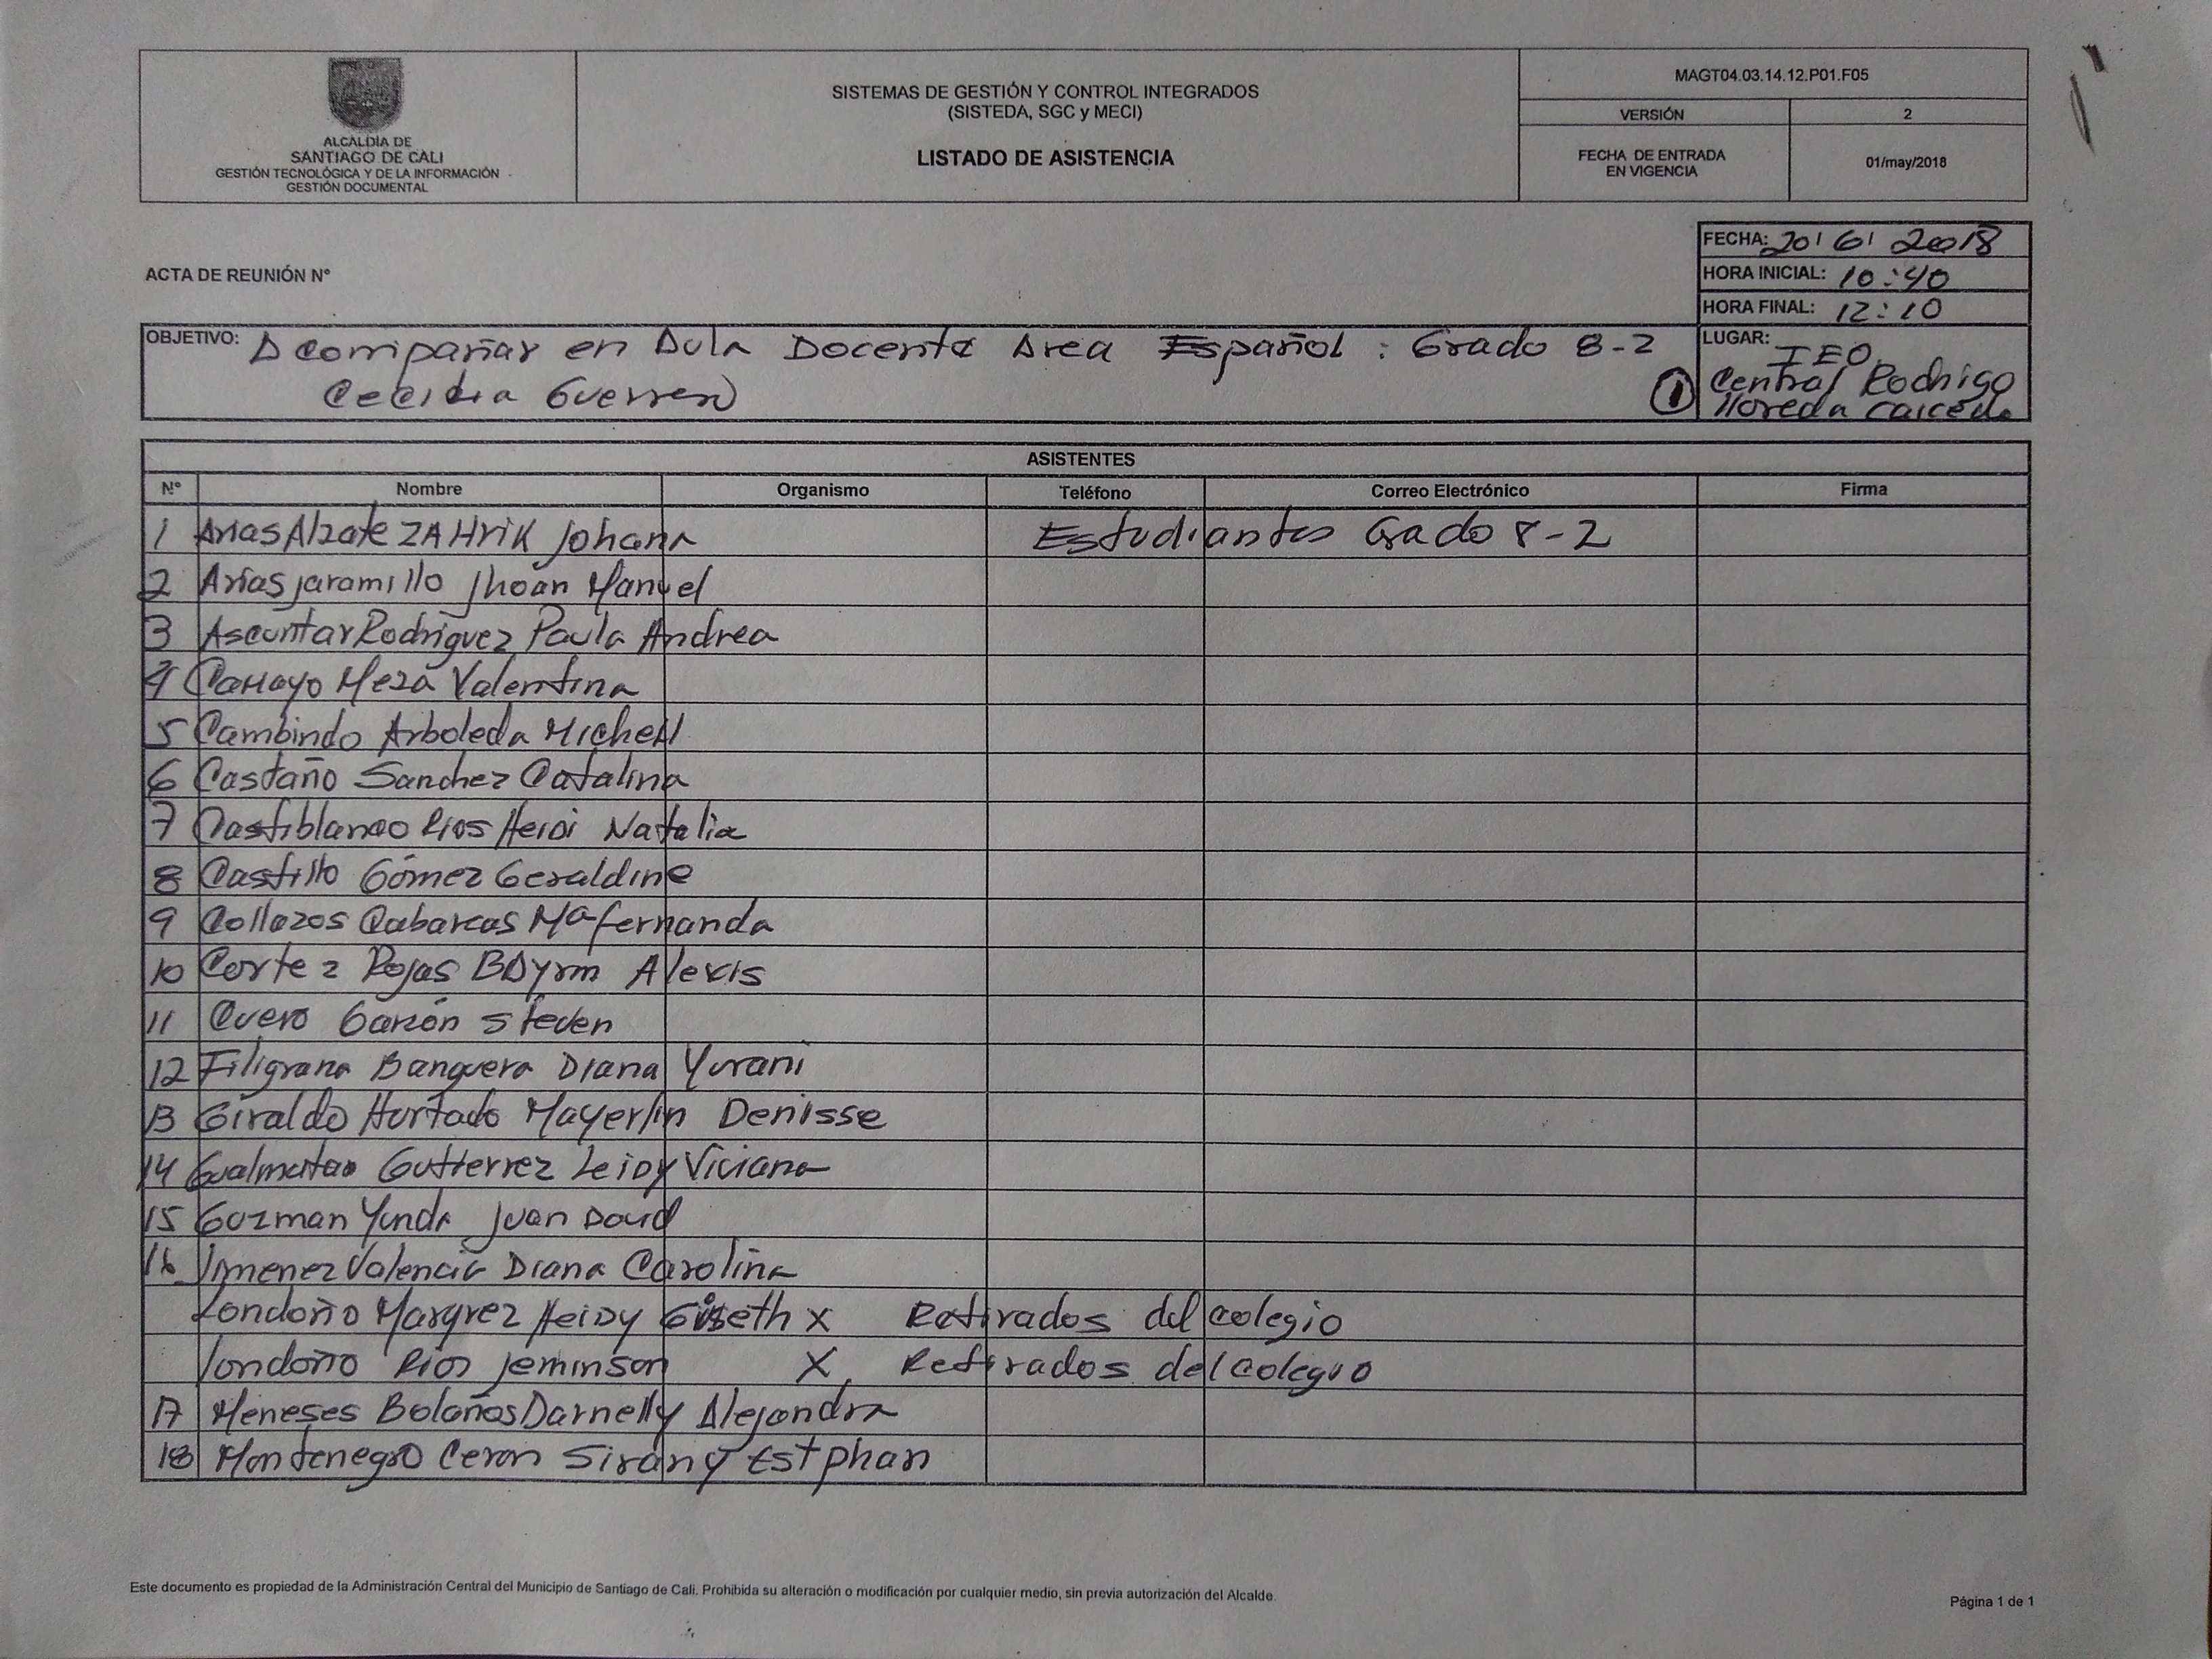 ALCALDÍA DE
SANTIAGO DE CALI
GESTIÓN TECNOLÓGICA Y DE LA INFORMACIÓN
GESTIÓN DOCUMENTAL
SISTEMAS DE GESTIÓN Y CONTROL INTEGRADOS
(SISTEDA, SGC y MECI)
LISTADO DE ASISTENCIA
MAGT04.03.14.12.P01.F05
VERSIÓN 2
FECHA DE ENTRADA
EN VIGENCIA
01/may/2018
ACTA DE REUNIÓN N°
FECHA: 20/ 6/ 2018
HORA INICIAL: 10:40
HORA FINAL: 12:10
OBJETIVO: Acompañar en Aula Docente Area Español: Grado 8-2
Cecidia Guerrero
1
LUGAR: IEO.
Central Rodrigo
lloreda Caicedo
ASISTENTES
N° Nombre Organismo Teléfono Correo Electrónico Firma
1 Arias Alzate ZAHriK Johann Estudiantes Grado 8-2
2 Arias jaramillo Jhoan Manuel
3 Ascuntar Rodriguez Paula Andrea
4 Camayo Meza Valentina
5 Cambindo Arboleda Michell
6 Castaño Sanchez Catalina
7 Castiblanco Rios Heidi Natalia
8 Castillo Gómez Geraldine
9 Collazos Cabarcas Mª fernanda
10 Cortez Rojas BAyrm Alexis
11 Cuero Garzón Steven
12 Filigrana Banguera Diana Yurani
13 Giraldo Hurtado Mayerlin Denisse
14 Gutierrez Leidy Viviana
15 Guzman Yunda Juan David
16 Jimenez Valencia Diana Carolina
Londoño Marquez Heidy Giseth X Retirados del colegio
londoño Rios Jeminson X Retirados del colegio
17 Meneses Bolaños Darnelly Alejandra
18 Montenegro Ceron Sirany Estphan
Este documento es propiedad de la Administración Central del Municipio de Santiago de Cali. Prohibida su alteración o modificación por cualquier medio, sin previa autorización del Alcalde.
Página 1 de 1